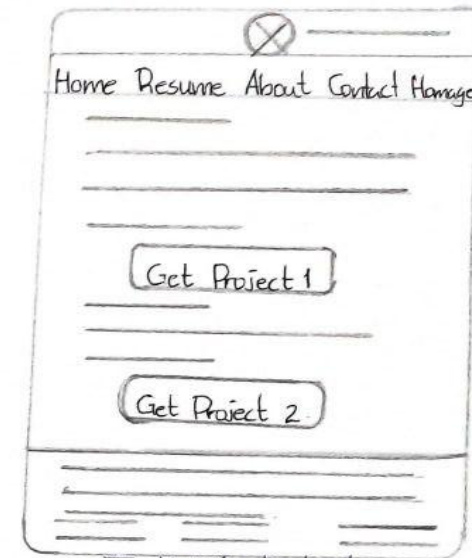 Home Resume About Contact Homage
Get Project 1
Get Project 2.